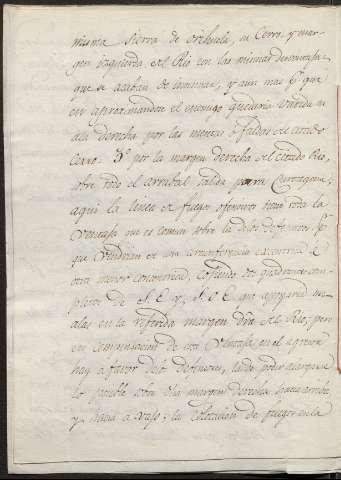 misma Sierra de Orihuela, su Cerro y mar-
gen izquierda del Rio con las mismas desventajas
que se acaban de enunciar, y aun mas pr. que
en aproximandose el enemigo quedaria batida su
ala derecha por las mesetas ó faldas del citado
Cerro: 3º por la margen derecha del citado Rio,
sobre todo el arrabal salida para Cartagena;
aqui la linea de fuegos ofensivos tiene toda la
Ventaja que es comun sobre la de los defensivos pr.
que vendrian en una circunferencia excentrica à
otra menor concentrica, cojiendo dos quadrantes com-
pletos de S.E. y S.O. E que apoyaria sus
alas en la referida margen dra. del Rio; pero
en compensacion de esta Ventaja en el agresor
hay a favor de los defensores, la de poder
lo posible sobre dha margen derecha, hacia arriba
y hacia abaxo; la colocacion de fuegos en la